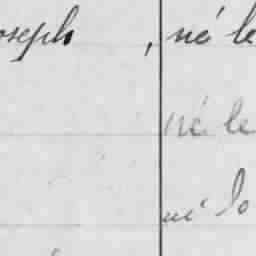 oseph , né le
né le
né le